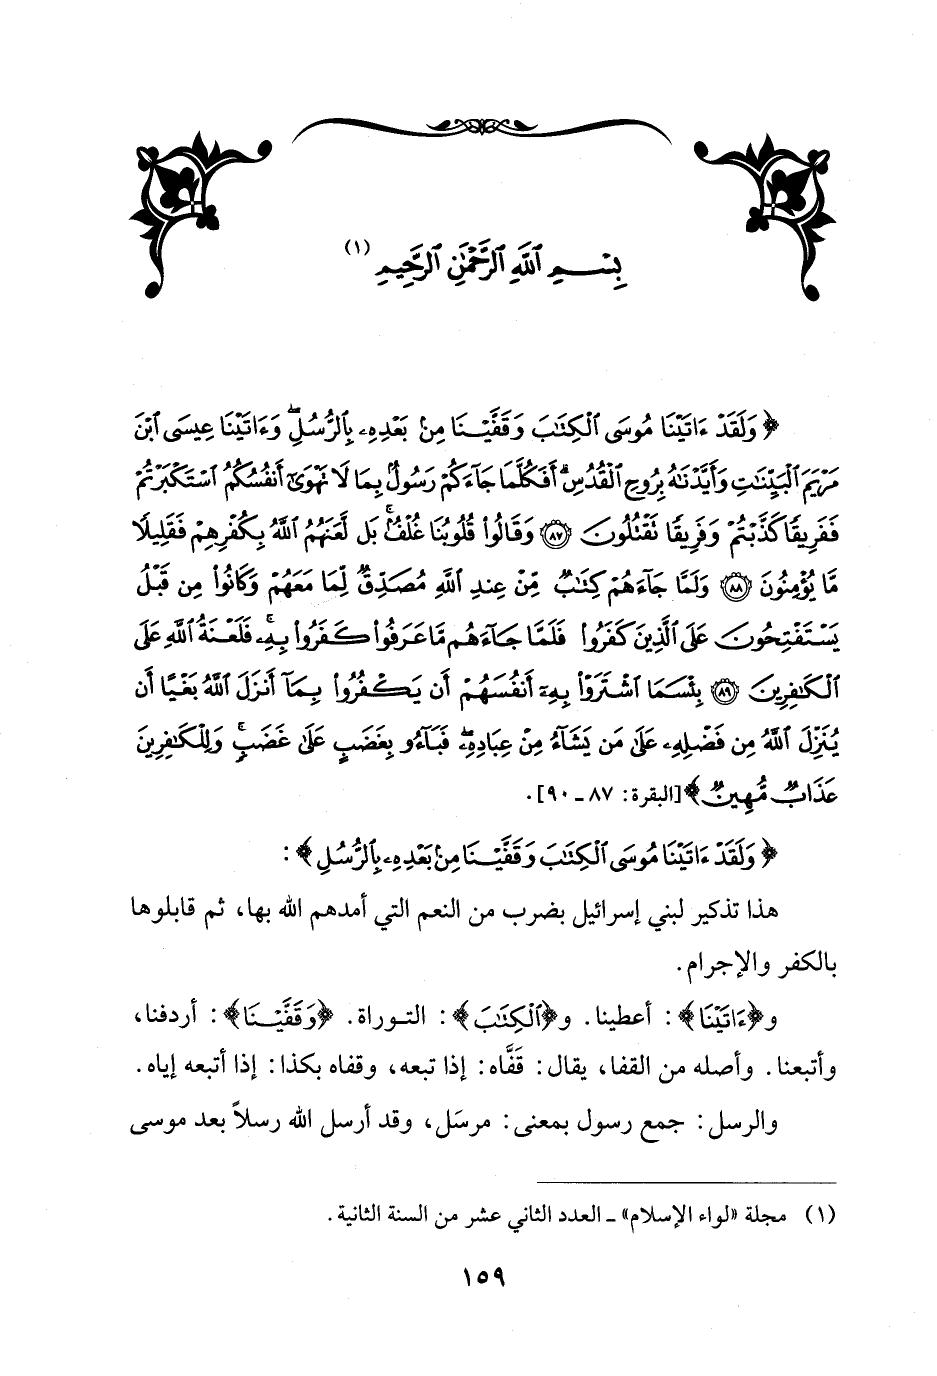 بِسْمِ ٱللَّهِ ٱلرَّحْمَٰنِ ٱلرَّحِيمِ (١)
﴿ وَلَقَدْ ءَاتَيْنَا مُوسَى ٱلْكِتَٰبَ وَقَفَّيْنَا مِنۢ بَعْدِهِۦ بِٱلرُّسُلِ ۖ وَءَاتَيْنَا عِيسَى ٱبْنَ
مَرْيَمَ ٱلْبَيِّنَٰتِ وَأَيَّدْنَٰهُ بِرُوحِ ٱلْقُدُسِ ۗ أَفَكُلَّمَا جَآءَكُمْ رَسُولٌۢ بِمَا لَا تَهْوَىٰٓ أَنفُسُكُمُ ٱسْتَكْبَرْتُمْ
فَفَرِيقًا كَذَّبْتُمْ وَفَرِيقًا تَقْتُلُونَ ٨٧ وَقَالُوا۟ قُلُوبُنَا غُلْفٌۢ ۚ بَل لَّعَنَهُمُ ٱللَّهُ بِكُفْرِهِمْ فَقَلِيلًا
مَّا يُؤْمِنُونَ ٨٨ وَلَمَّا جَآءَهُمْ كِتَٰبٌ مِّنْ عِندِ ٱللَّهِ مُصَدِّقٌ لِّمَا مَعَهُمْ وَكَانُوا۟ مِن قَبْلُ
يَسْتَفْتِحُونَ عَلَى ٱلَّذِينَ كَفَرُوا۟ فَلَمَّا جَآءَهُم مَّا عَرَفُوا۟ كَفَرُوا۟ بِهِۦ ۚ فَلَعْنَةُ ٱللَّهِ عَلَى
ٱلْكَٰفِرِينَ ٨٩ بِئْسَمَا ٱشْتَرَوْا۟ بِهِۦٓ أَنفُسَهُمْ أَن يَكْفُرُوا۟ بِمَآ أَنزَلَ ٱللَّهُ بَغْيًا أَن
يُنَزِّلَ ٱللَّهُ مِن فَضْلِهِۦ عَلَىٰ مَن يَشَآءُ مِنْ عِبَادِهِۦ ۖ فَبَآءُو بِغَضَبٍ عَلَىٰ غَضَبٍ ۚ وَلِلْكَٰفِرِينَ
عَذَابٌ مُّهِينٌ ﴾ [البقرة: ٨٧ ـ ٩٠].
﴿ وَلَقَدْ ءَاتَيْنَا مُوسَى ٱلْكِتَٰبَ وَقَفَّيْنَا مِنۢ بَعْدِهِۦ بِٱلرُّسُلِ ﴾:
هذا تذكير لبني إسرائيل بضرب من النعم التي أمدهم الله بها، ثم قابلوها
بالكفر والإجرام.
و﴿ءَاتَيْنَا﴾: أعطينا. و﴿ٱلْكِتَٰبَ﴾: التوراة. ﴿وَقَفَّيْنَا﴾: أردفنا،
وأتبعنا. وأصله من القفا، يقال: قَفَّاه: إذا تبعه، وقفاه بكذا: إذا أتبعه إياه.
والرسل: جمع رسول بمعنى: مرسَل، وقد أرسل الله رسلاً بعد موسى
(١) مجلة «لواء الإسلام» ـ العدد الثاني عشر من السنة الثانية.
١٥٩